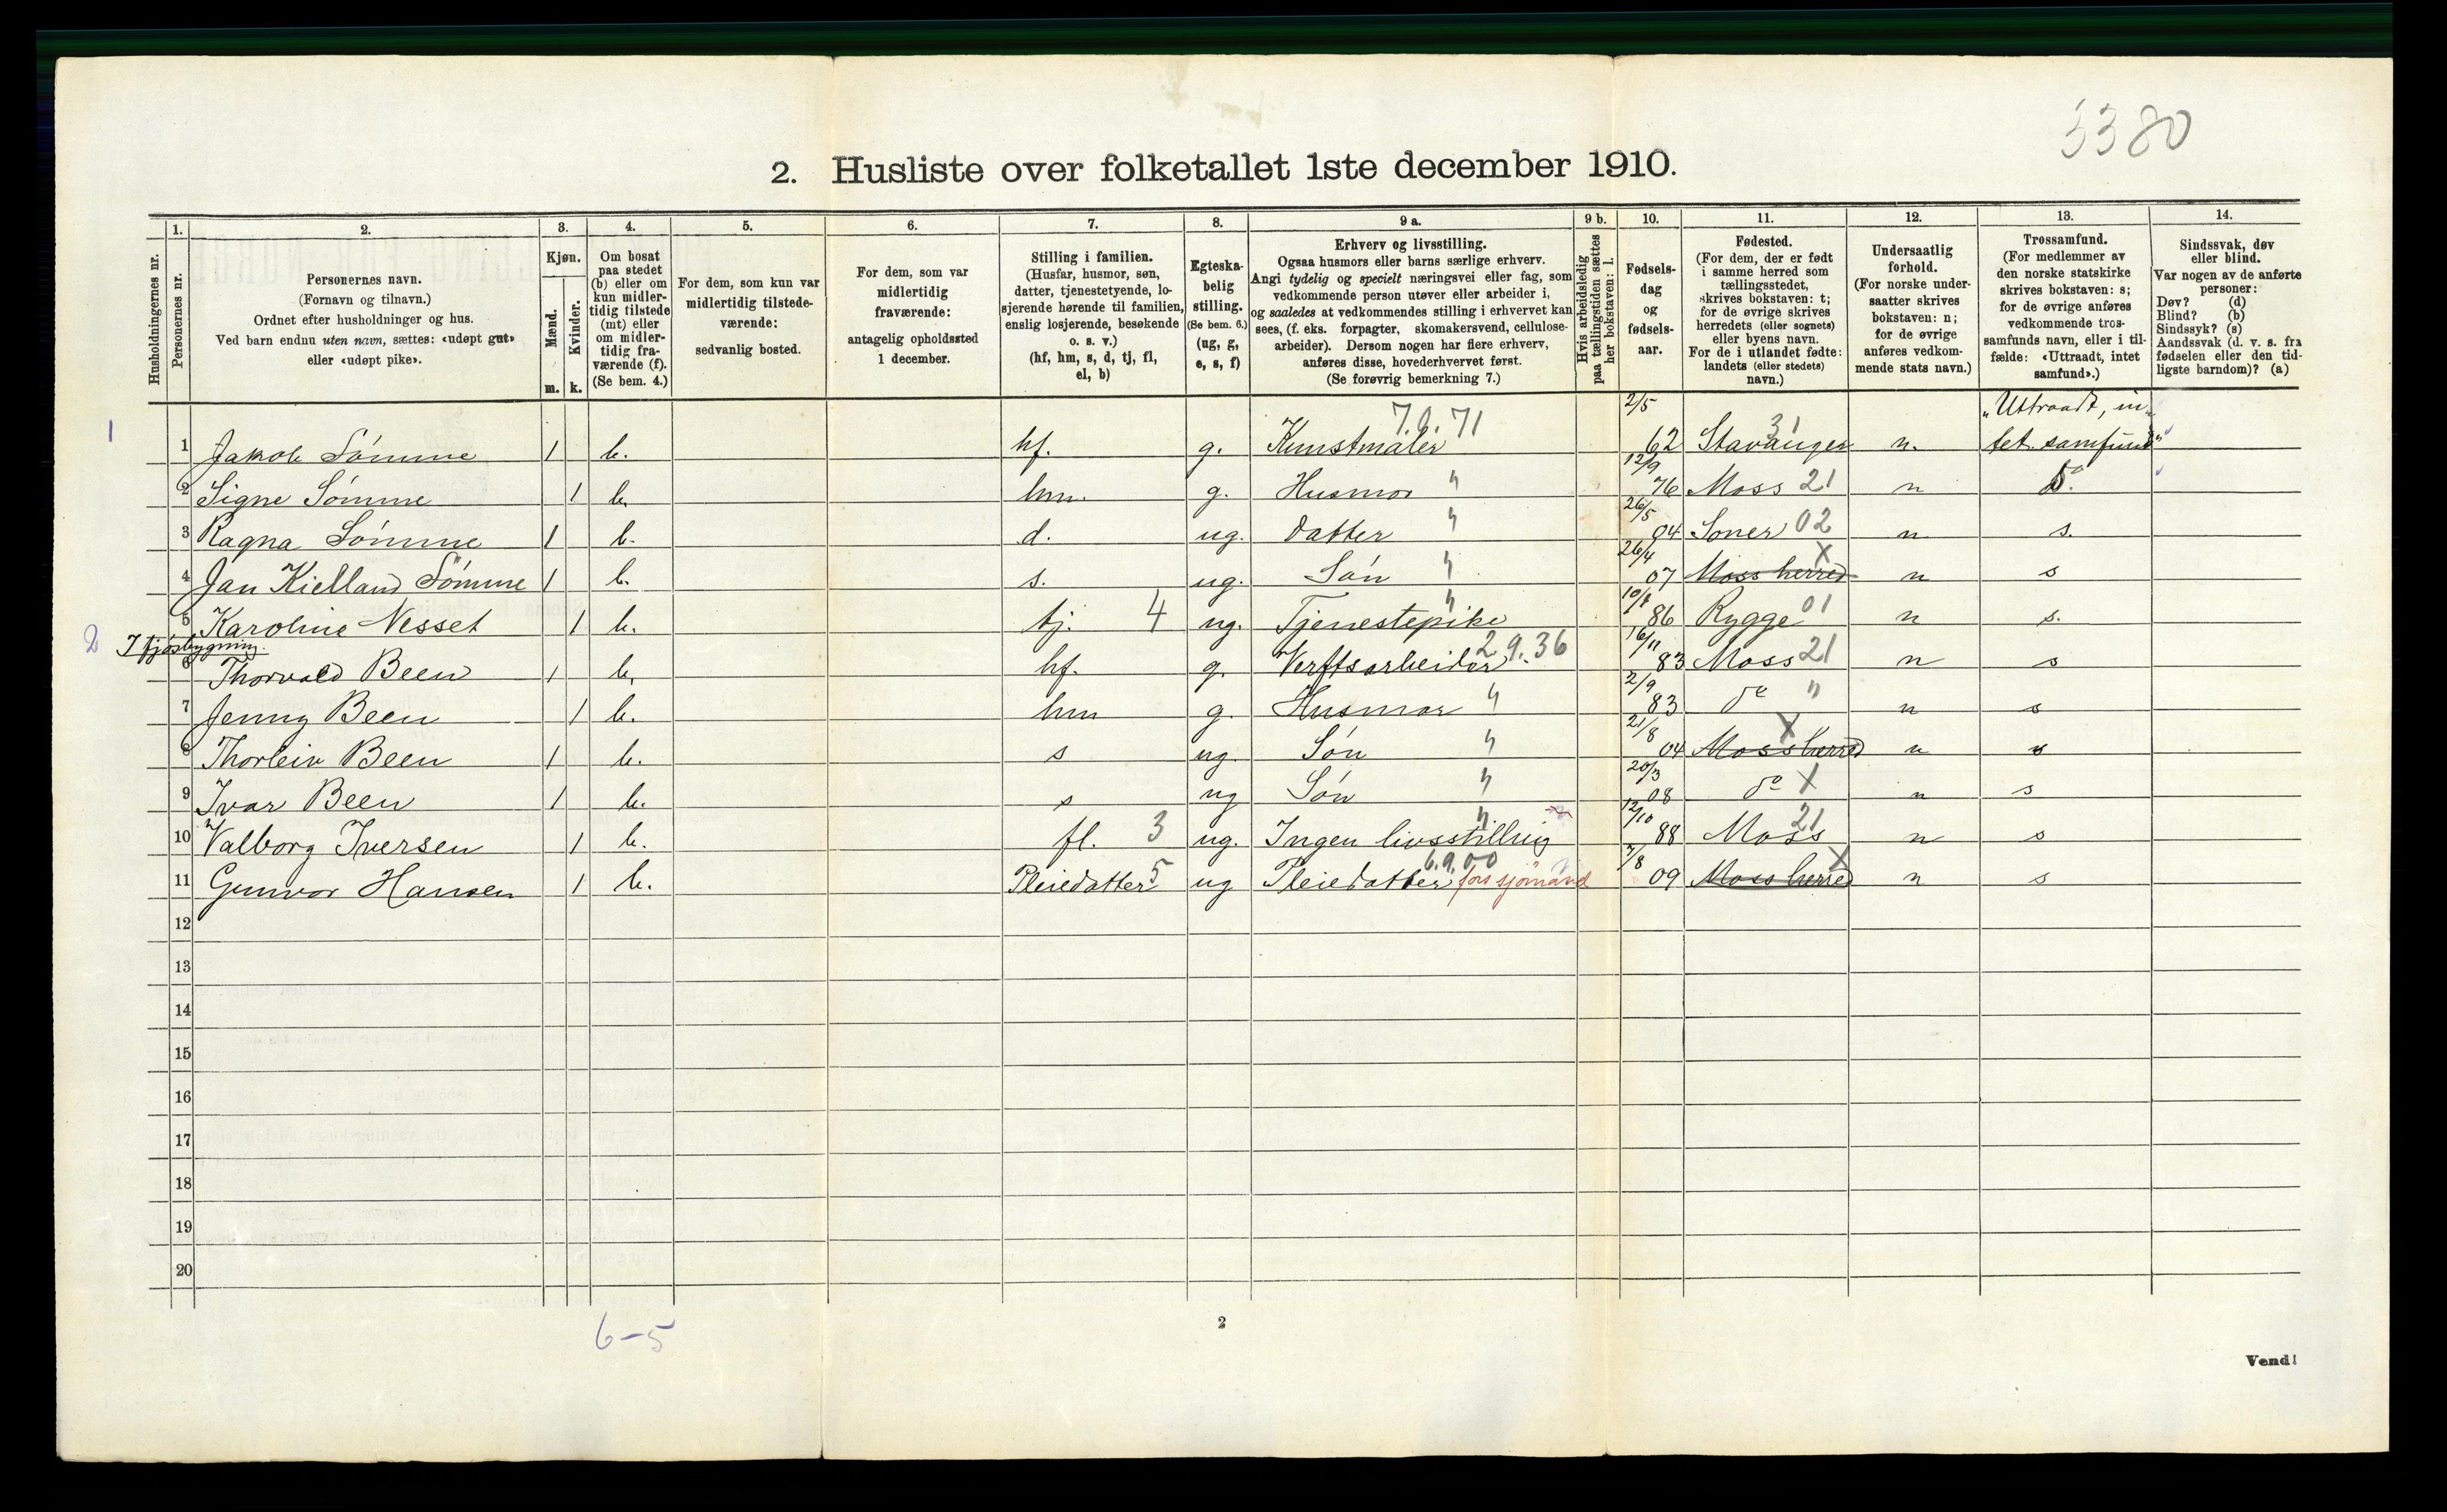 3380
2. Husliste over folketallet 1ste december 1910.
Husholdningernes nr.
1.
Personernes nr.
2.
Personernes navn.
(Fornavn og tilnavn.)
Ordnet efter husholdninger og hus.
Ved barn endnu uten navn, sættes: «udøpt gut»
eller «udøpt pike».
3.
Kjøn.
Mænd.
Kvinder.
m. k.
4.
Om bosat
paa stedet
(b) eller om
kun midler-
tidig tilstede
(mt) eller
om midler-
tidig fra-
værende (f).
(Se bem. 4.)
5.
For dem, som kun var
midlertidig tilstede-
værende:
sedvanlig bosted.
6.
For dem, som var
midlertidig
fraværende:
antagelig opholdssted
1 december.
7.
Stilling i familien.
(Husfar, husmor, søn,
datter, tjenestetyende, lo-
sjerende hørende til familien,
enslig losjerende, besøkende
o. s. v.)
(hf, hm, s, d, tj, fl,
el, b)
8.
Egteska-
belig
stilling.
(Se bem. 6.)
(ug, g,
e, s, f)
9 a.
Erhverv og livsstilling.
Ogsaa husmors eller barns særlige erhverv.
Angi tydelig og specielt næringsvei eller fag, som
vedkommende person utøver eller arbeider i,
og saaledes at vedkommendes stilling i erhvervet kan
sees, (f. eks. forpagter, skomakersvend, cellulose-
arbeider). Dersom nogen har flere erhverv,
anføres disse, hovederhvervet først.
(Se forøvrig bemerkning 7.)
9 b.
Hvis arbeidsledig
paa tællingstiden sættes
her bokstaven: l.
10.
Fødsels-
dag
og
fødsels-
aar.
11.
Fødested.
(For dem, der er født
i samme herred som
tællingsstedet,
skrives bokstaven: t;
for de øvrige skrives
herredets (eller sognets)
eller byens navn.
For de i utlandet fødte:
landets (eller stedets)
navn.)
12.
Undersaatlig
forhold.
(For norske under-
saatter skrives
bokstaven: n;
for de øvrige
anføres vedkom-
mende stats navn.)
13.
Trossamfund.
(For medlemmer av
den norske statskirke
skrives bokstaven: s;
for de øvrige anføres
vedkommende tros-
samfunds navn, eller i til-
fælde: «Uttraadt, intet
samfund».)
14.
Sindssvak, døv
eller blind.
Var nogen av de anførte
personer:
Døv? (d)
Blind? (b)
Sindssyk? (s)
Aandssvak (d. v. s. fra
fødselen eller den tid-
ligste barndom)? (a)
7.0.71 2/5 31 "Uttraadt, in-
1 1 Jakob Sömme 1 b. hf. g. Kunstmaler 62 Stavanger n. tet samfund"
2 Signe Sömme 1 b. hm. g. Husmor " 12/9 76 Moss 21 n do
3 Ragna Sömme 1 b. d. ug. datter " 26/5 04 Soner 02 n s.
4 Jan Kielland Sömme 1 b. s. ug. Søn " 26/4 07 Moss herred X n s
5 Karoline Nesset 1 b. tj. 4 ug. Tjenestepike " 86 Rygge 01 n s.
2 I fjösbygning.
6 Thorvald Been 1 b. hf. g. Verftsarbeider 2.9.36 16/11 83 Moss 21 n s
7 Jenny Been 1 b. hm g. Husmor " 2/9 83 do " n s
8 Thorleiv Been 1 b. s ug. Søn " 21/8 04 Moss herred X n s
9 Ivar Been 1 b. s ug Søn " 20/3 08 do X n s
10 Valborg Iversen 1 b. fl. 3 ug. Ingen livsstilling " 12/10 88 Moss 21 n s
11 Gunvor Hansen 1 b. Pleiedatter 5 ug Pleiedatter 6.9.00 fors sjömand 7/8 09 Moss herred X n s
12
13
14
15
16
17
18
19
20
6-5
2
Vend!